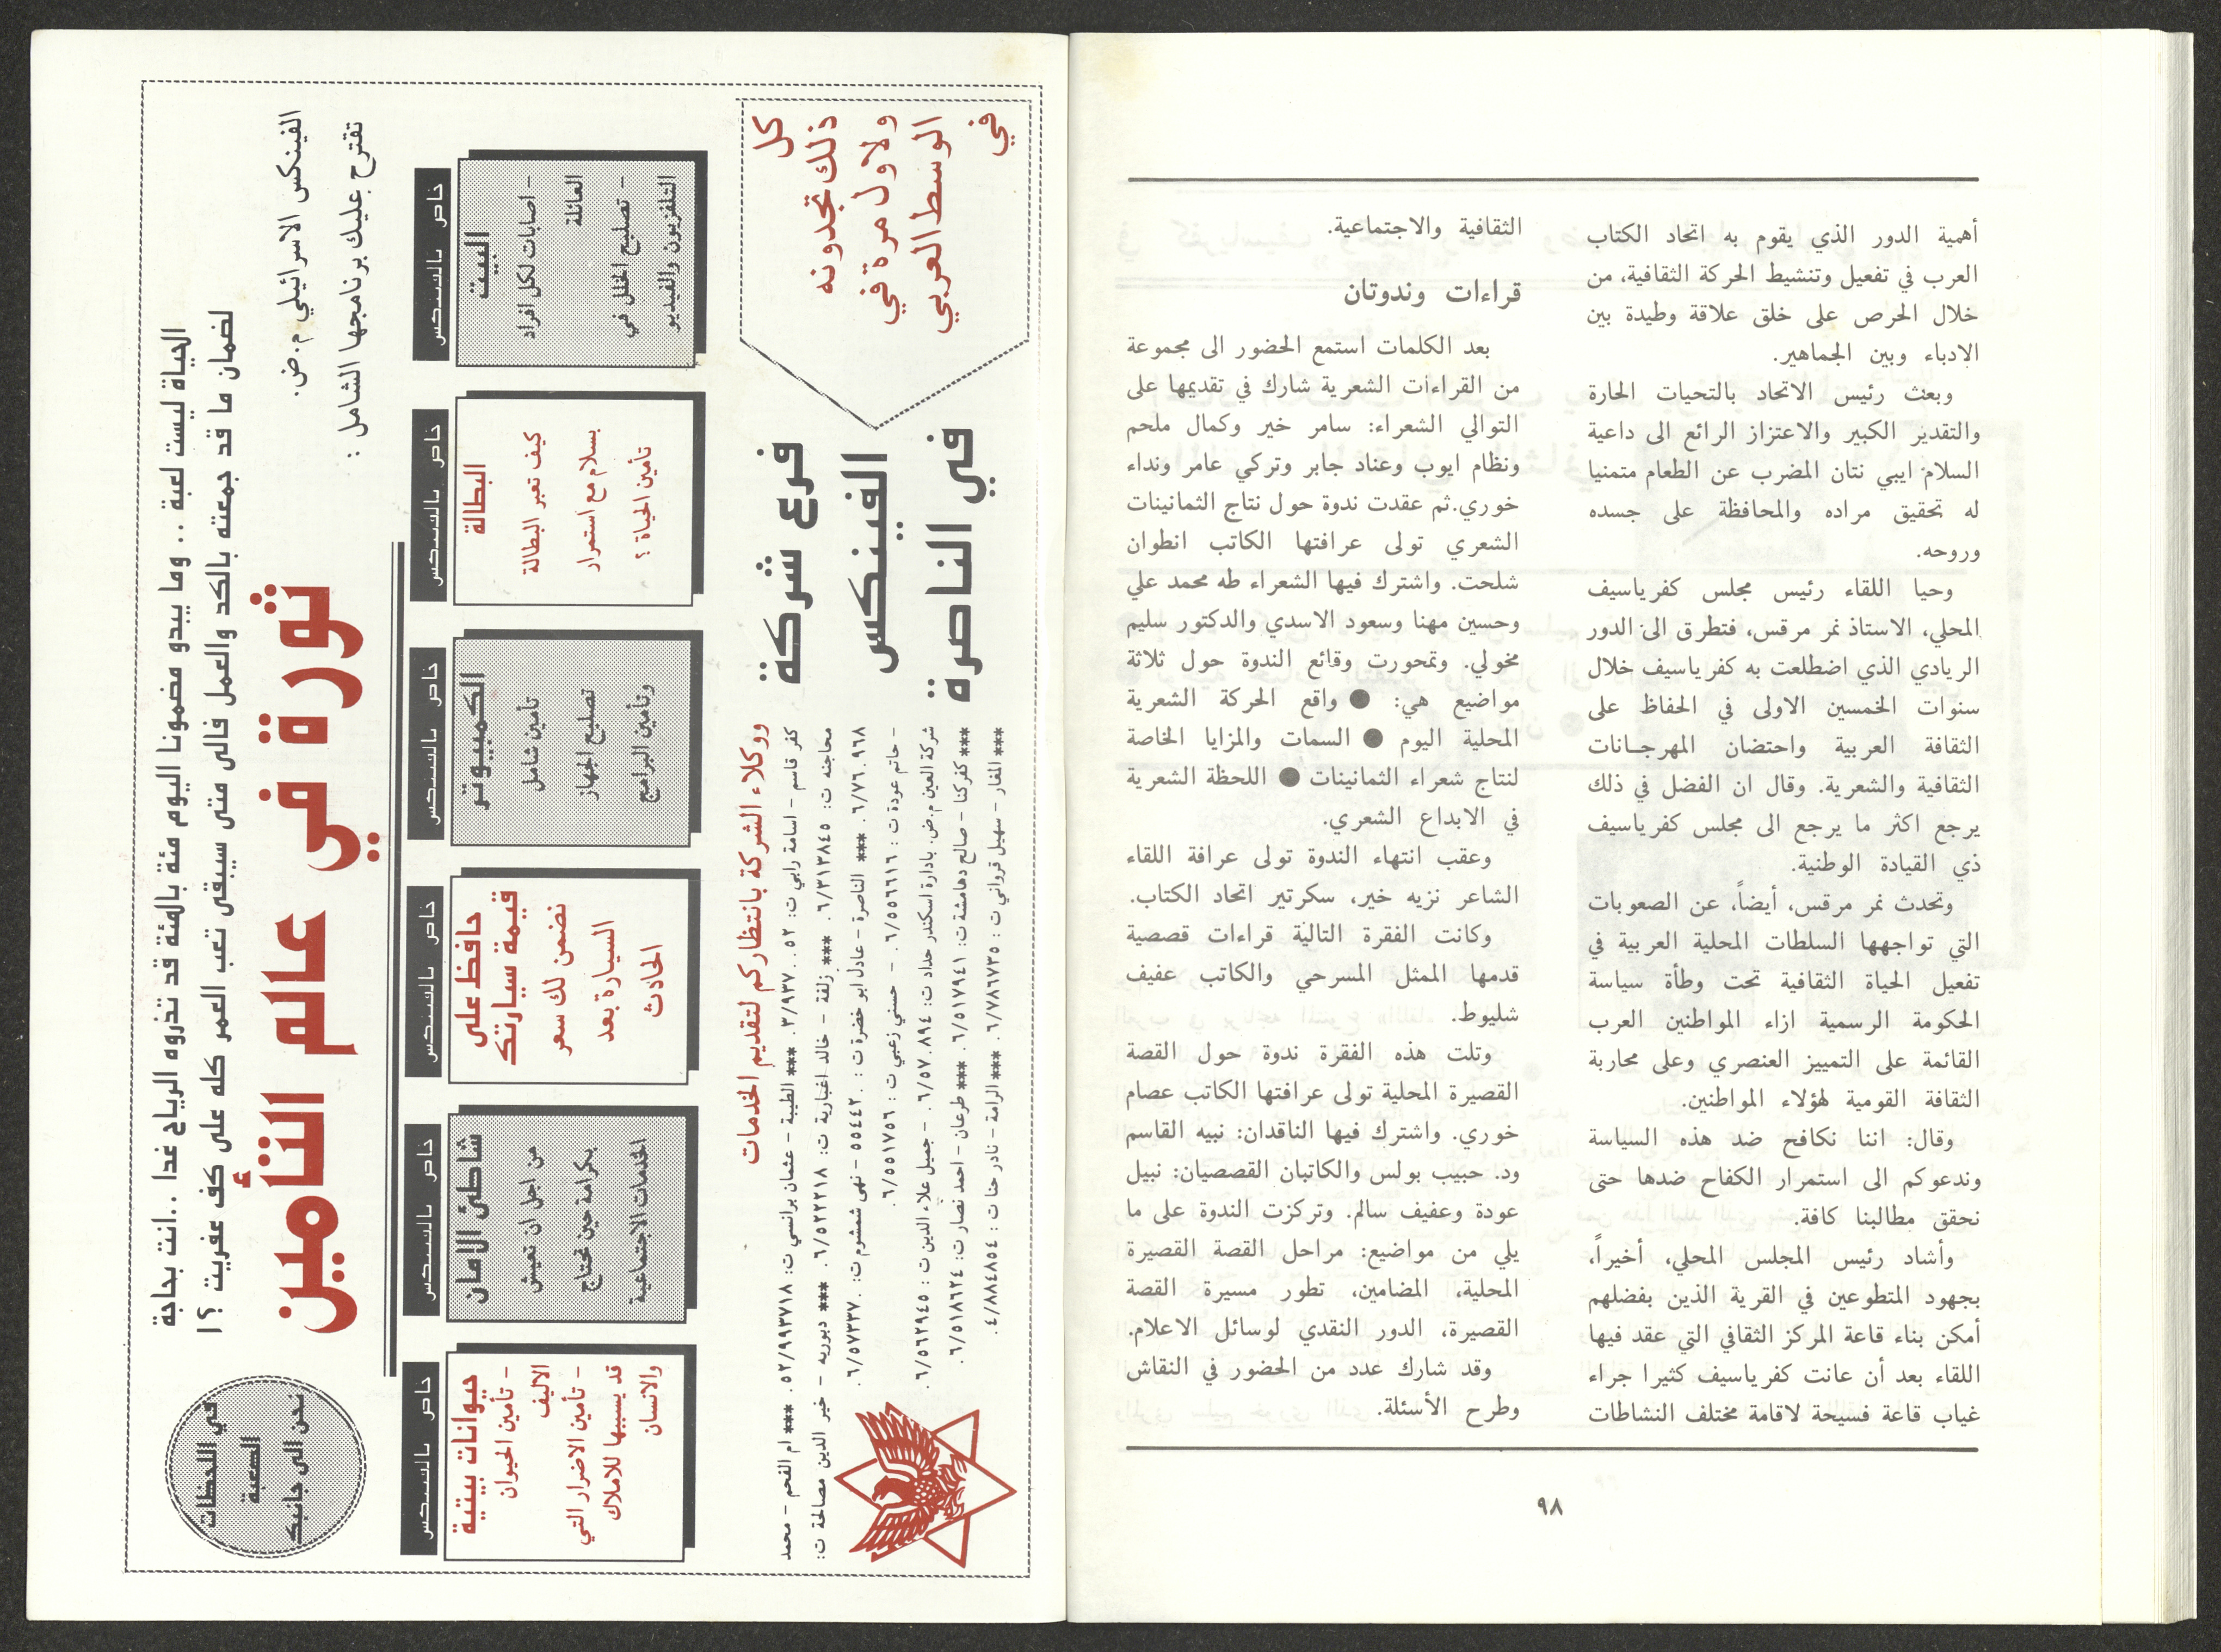 أهمية الدور الذي يقوم به اتحاد الكتاب
العرب في تفعيل وتنشيط الحركة الثقافية، من
خلال الحرص على خلق علاقة وطيدة بين
الادباء وبين الجماهير.
وبعث رئيس الاتحاد بالتحيات الحارة
والتقدير الكبير والاعتزاز الرائع الى داعية
السلام ايبي نتان المضرب عن الطعام متمنيا
له تحقيق مراده والمحافظة على جسده
وروحه.
وحيا اللقاء رئيس مجلس كفرياسيف
المحلي، الاستاذ نمر مرقس، فتطرق الى الدور
الريادي الذي اضطلعت به كفرياسيف خلال
سنوات الخمسين الاولى في الحفاظ على
الثقافة العربية واحتضان المهرجانات
الثقافية والشعرية. وقال ان الفضل في ذلك
يرجع اكثر ما يرجع الى مجلس كفرياسيف
ذي القيادة الوطنية.
وتحدث نمر مرقس، أيضاً، عن الصعوبات
التي تواجهها السلطات المحلية العربية في
تفعيل الحياة الثقافية تحت وطأة سياسة
الحكومة الرسمية ازاء المواطنين العرب
القائمة على التمييز العنصري وعلى محاربة
الثقافة القومية لهؤلاء المواطنين.
وقال: اننا نكافح ضد هذه السياسة
وندعوكم الى استمرار الكفاح ضدها حتى
نحقق مطالبنا كافة.
وأشاد رئيس المجلس المحلي، أخيراً،
بجهود المتطوعين في القرية الذين بفضلهم
أمكن بناء قاعة المركز الثقافي التي عقد فيها
اللقاء بعد أن عانت كفرياسيف كثيرا جراء
غياب قاعة فسيحة لاقامة مختلف النشاطات
الثقافية والاجتماعية.
قراءات وندوتان
بعد الكلمات استمع الحضور الى مجموعة
من القراءات الشعرية شارك في تقديمها على
التوالي الشعراء: سامر خير وكمال ملحم
ونظام ايوب وعناد جابر وتركي عامر ونداء
خوري.ثم عقدت ندوة حول نتاج الثمانينات
الشعري تولى عرافتها الكاتب انطوان
شلحت. واشترك فيها الشعراء طه محمد علي
وحسين مهنا وسعود الاسدي والدكتور سليم
مخولي. وتمحورت وقائع الندوة حول ثلاثة
مواضيع هي: ● واقع الحركة الشعرية
المحلية اليوم ● السمات والمزايا الخاصة
لنتاج شعراء الثمانينات ● اللحظة الشعرية
في الابداع الشعري.
وعقب انتهاء الندوة تولى عرافة اللقاء
الشاعر نزيه خير، سكرتير اتحاد الكتاب.
وكانت الفقرة التالية قراءات قصصية
قدمها الممثل المسرحي والكاتب عفيف
شليوط.
وتلت هذه الفقرة ندوة حول القصة
القصيرة المحلية تولى عرافتها الكاتب عصام
خوري. واشترك فيها الناقدان: نبيه القاسم
ود. حبيب بولس والكاتبان القصصيان: نبيل
عودة وعفيف سالم. وتركزت الندوة على ما
يلي من مواضيع: مراحل القصة القصيرة
المحلية، المضامين، تطور مسيرة القصة
القصيرة، الدور النقدي لوسائل الاعلام.
وقد شارك عدد من الحضور في النقاش
وطرح الأسئلة.
٩٨
الفينكس الاسرائيلي م.ض.
تقترح عليك برنامجها الشامل :
الحياة ليست لعبة .. وما يبدو مضمونا اليوم مئة بالمئة قد تذروه الرياح غدا ..انت بحاجة
لضمان ما قد جمعته بالكد والعمل فالى متى سيبقى تعب العمر كله على كف عفريت ؟!
ثورة في عالم التأمين
في اللحظات
الصعبة
نحن الى جانبك
خاص بالفينكس
البيت
- اصابات لكل افراد
العائلة
- تصليح الخلل في
التلفزيون والفيديو
خاص بالفينكس
البطالة
كيف تعبر البطالة
بسلام مع استمرار
تأمين الحياة ؟
خاص بالفينكس
الكمبيوتر
تأمين شامل
تصليح الجهاز
وتأمين البرامج
خاص بالفينكس
حافظ على
قيمة سيارتك
نضمن لك سعر
السيارة بعد
الحادث
خاص بالفينكس
شاطئ الامان
من اجل ان تعيش
بكرامة حين تحتاج
الخدمات الاجتماعية
خاص بالفينكس
حيوانات بيتية
- تأمين الحيوان
الاليف
- تأمين الاضرار التي
قد يسببها للاملاك
والانسان
كل
ذلك تجدونه
ولاول مرة في
الوسط العربي
في
فرع شركة
الفينكس
في الناصرة
ووكلاء الشركة بانتظاركم لتقديم الخدمات
كفر قاسم - اسامة رابي ت: ٠٥٢..٣/٩٣٧. *** الطيبة - عثمان برانسي ت: ٠٥٢/٩٩٣٧١٨. *** ام الفحم - محمد
محاجنه ت: ٠٦/٣١٣٨٤٥. *** زلفة - خالد اغبارية ت: ٠٦/٥٢٢٢١٨. *** دبوريه - خير الدين مصالحة ت:
٠٦/٧٦٠٩٦٨. *** الناصرة - عادل ابو خضرة ت: ٥٥٤٤٢٠ - نهى شمشوم ت: ٠٦/٥٧٣٣٧٠.
- حاتم عودة ت : ٠٦/٥٥٦٦١٦ . - حسني زعبي ت : ٠٦/٥٥١٧٥٦.
شركة العين م.ض. بادارة اسكندر حداد ت: ٠٦/٥٧٠٨٩٤. - جميل علاء الدين ت : ٠٦/٥٦٢٩٤٥.
*** كفركنا - صالح دهامشة ت: ٠٦/٥١٧٩٤١. *** طرعان - احمد نصار ت: ٠٦/٥١٨٦٢٤.
*** المغار - سهيل قزواني ت : ٠٦/٧٨٦٧٣٥. *** الرامة - نادر حنا ت : ٠٤/٨٨٤٨٥٤.